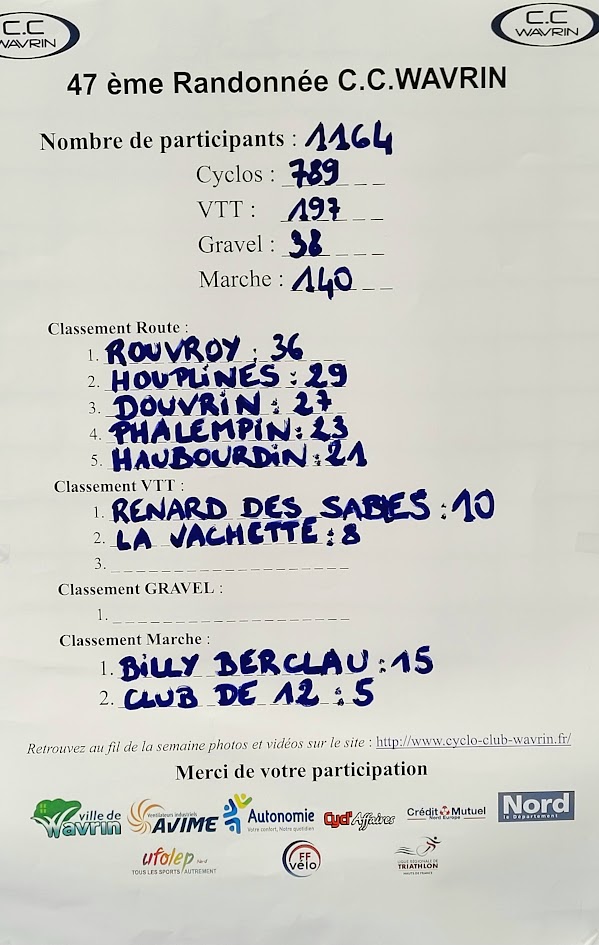 C.C
WAVRIN
C.C
WAVRIN
47 ème Randonnée C.C.WAVRIN
Nombre de participants : 1164
Cyclos : 789
VTT : 197
Gravel : 38
Marche : 140
Classement Route :
1. ROUVROY : 36
2. HOUPLINES : 29
3. DOUVRIN : 27
4. PHALEMPIN : 23
5. HAUBOURDIN : 21
Classement VTT :
1. RENARD DES SABLES : 10
2. LA VACHETTE : 8
3.
Classement GRAVEL :
1.
Classement Marche :
1. BILLY BERCLAU : 15
2. CLUB DE 12 : 5
Retrouvez au fil de la semaine photos et vidéos sur le site : http://www.cyclo-club-wavrin.fr/
Merci de votre participation
ville de Wavrin
Ventilateurs industriels AVIME
Autonomie
Votre confort, Notre quotidien
Cycl'Affaires
Crédit Mutuel
Nord Europe
Nord
le Département
ufolep Nord
TOUS LES SPORTS AUTREMENT
FF vélo
LIGUE RÉGIONALE DE
TRIATHLON
HAUTS DE FRANCE